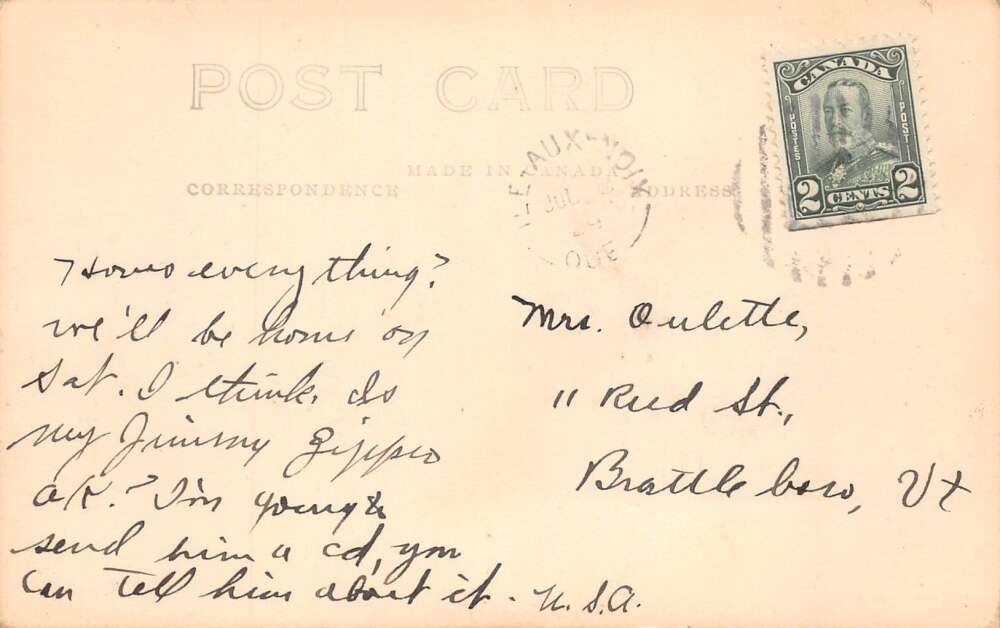 POST CARD
CANADA
POSTES
POST
2 CENTS 2
MADE IN CANADA
CORRESPONDENCE
ADDRESS
AUX-NOIX
JUL
QUE
Hows everything?
We'll be home on
Sat. I think. Is
my Jimmy
O.K.? I'm going to
send him a cd, you
can tell him about it.
Mrs. Oulette,
11 Reed St.,
Brattleboro, Vt
U.S.A.